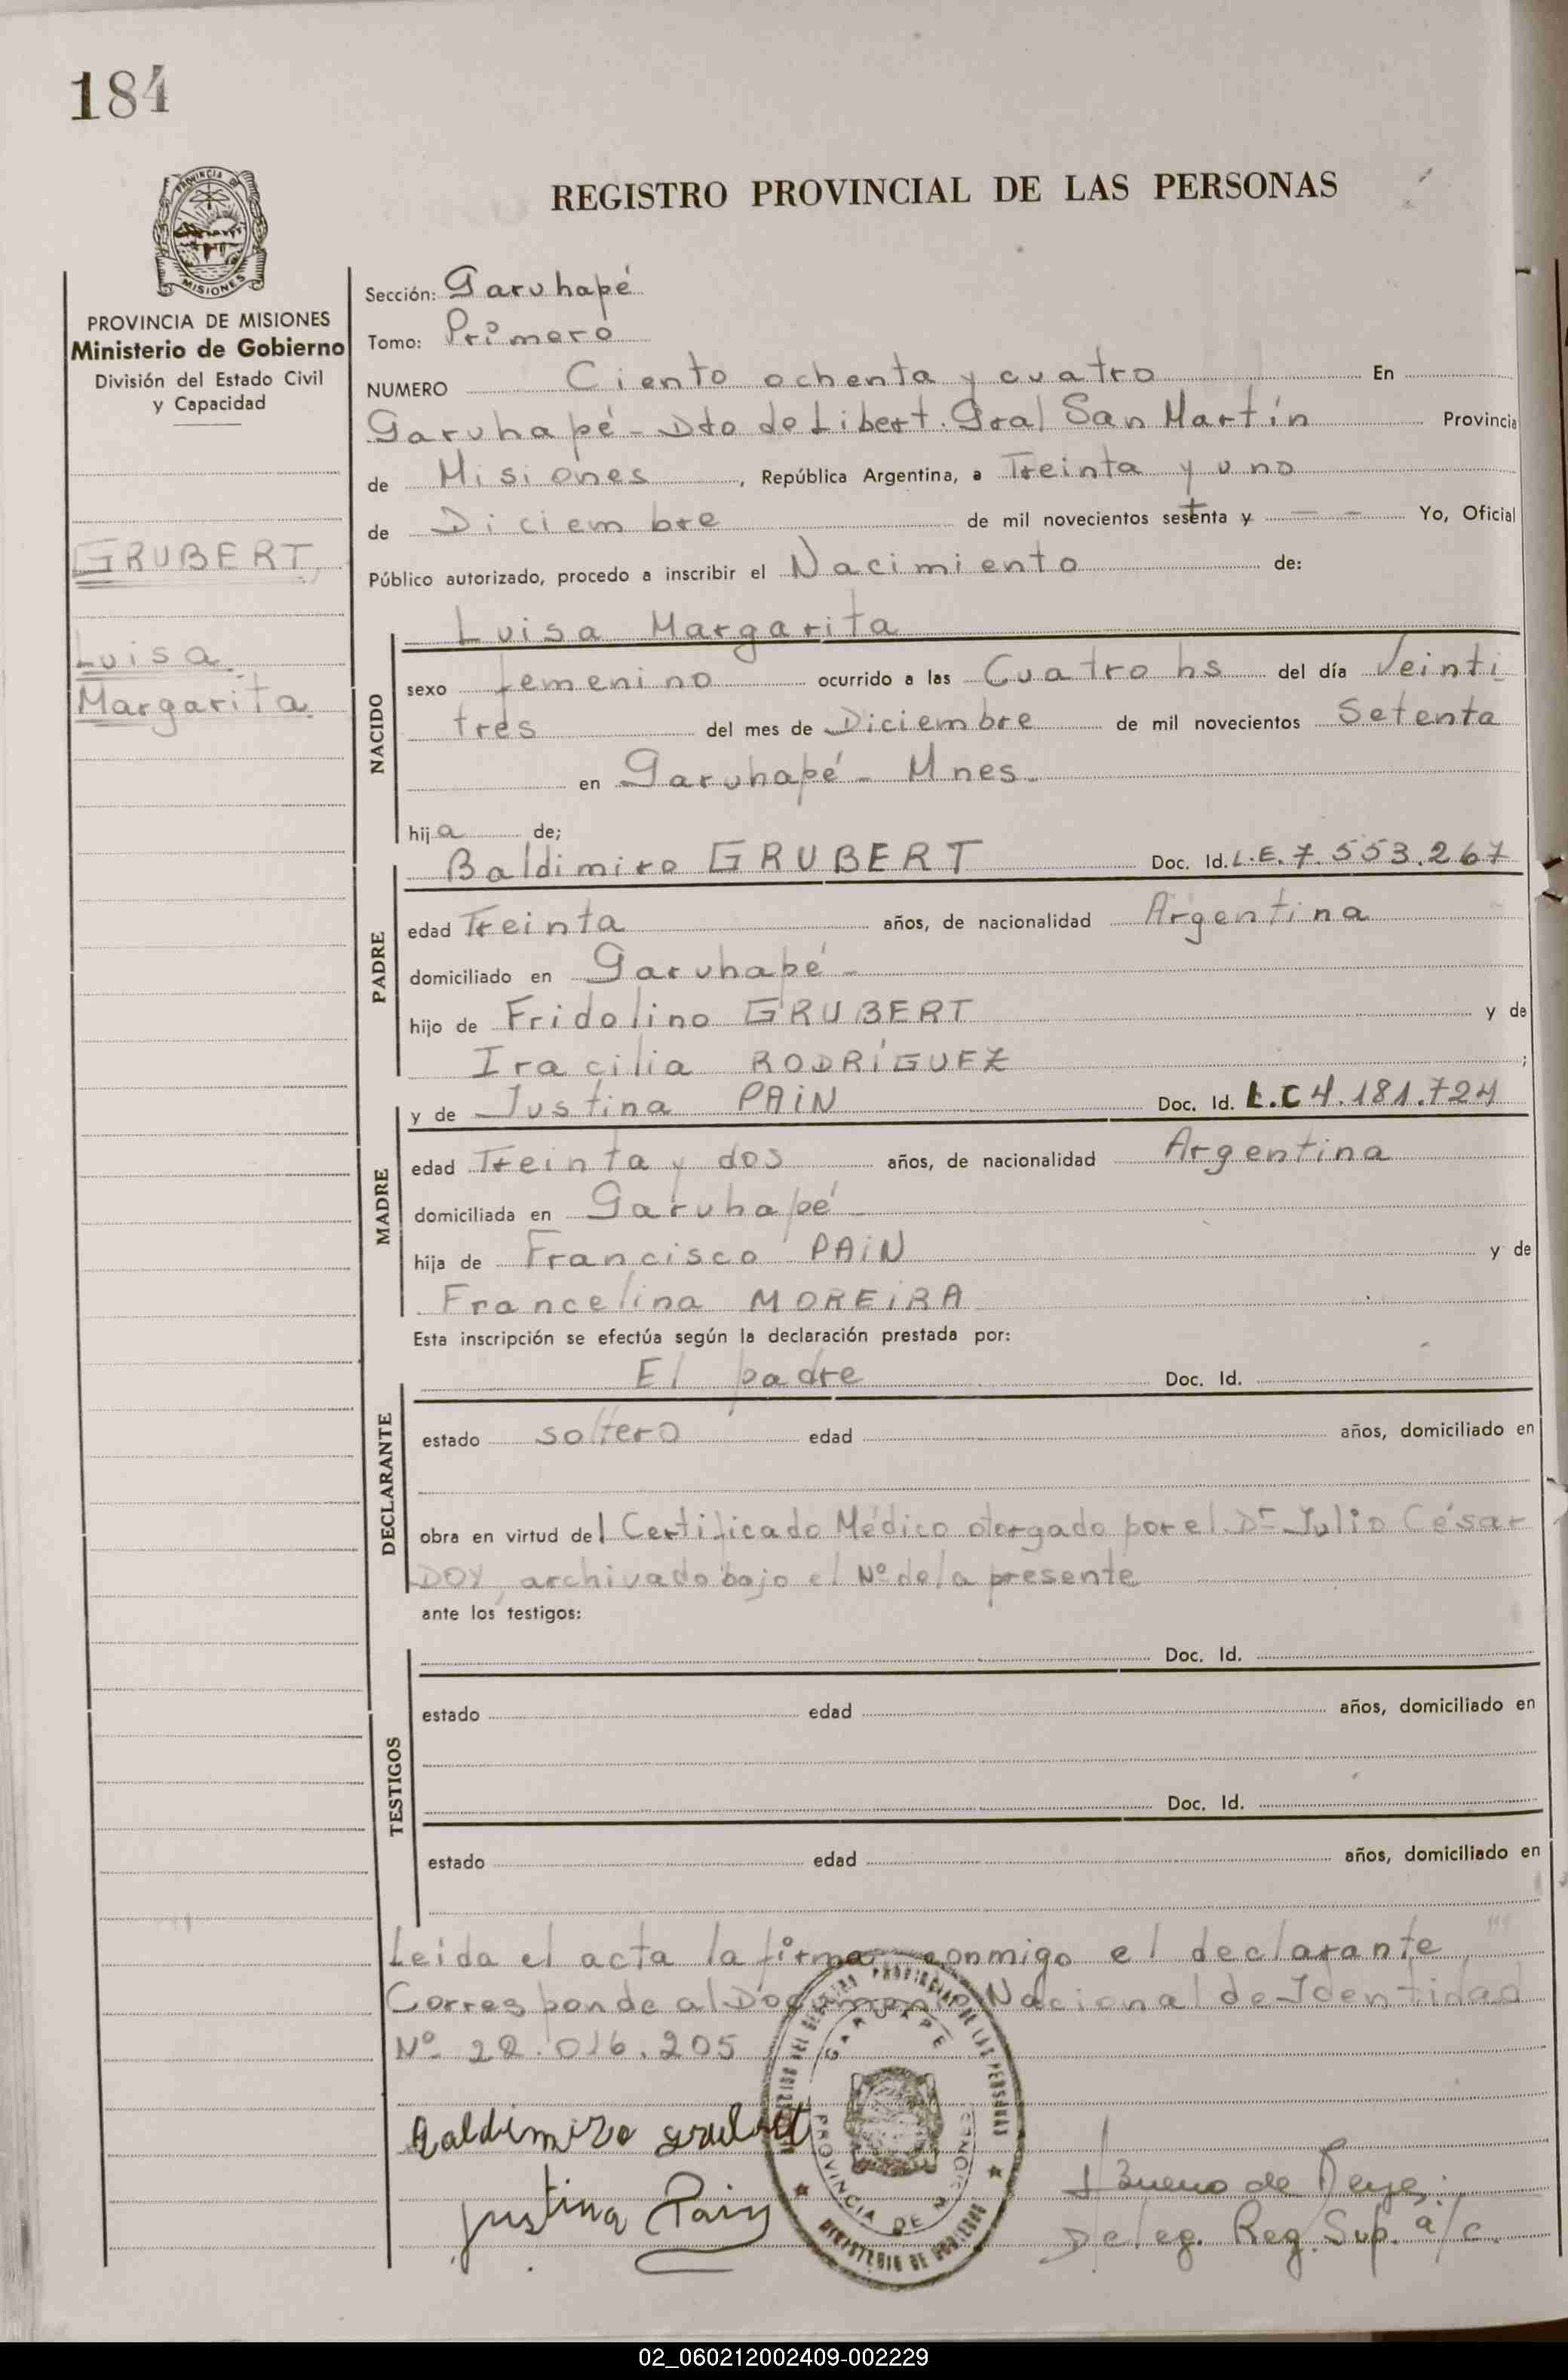 184
PROVINCIA DE
MISIONES
PROVINCIA DE MISIONES
Ministerio de Gobierno
División del Estado Civil
y Capacidad
GRUBERT,
Luisa
Margarita.
REGISTRO PROVINCIAL DE LAS PERSONAS
Sección: Garuhapé
Tomo: Primero
NUMERO Ciento ochenta y cuatro En
Garuhapé - Dto de Libert. Gral San Martín Provincia
de Misiones, República Argentina, a Treinta y uno
de Diciembre de mil novecientos setenta y - - Yo, Oficial
Público autorizado, procedo a inscribir el Nacimiento de:
NACIDO
Luisa Margarita
sexo femenino ocurrido a las Cuatro hs del día Veinti
tres del mes de Diciembre de mil novecientos Setenta
en Garuhapé - Mnes.
hija de;
PADRE
Baldimiro GRUBERT Doc. Id. L.E. 7.553.267
edad Treinta años, de nacionalidad Argentina
domiciliado en Garuhapé -
hijo de Fridolino GRUBERT y de
Iracilia RODRÍGUEZ ;
MADRE
y de Justina PAiN Doc. Id. L.C 4.181.724
edad Treinta y dos años, de nacionalidad Argentina
domiciliada en Garuhapé
hija de Francisco PAiN y de
Francelina MOREiRA
Esta inscripción se efectúa según la declaración prestada por:
DECLARANTE
El padre Doc. Id.
estado soltero edad años, domiciliado en
obra en virtud del Certificado Médico otorgado por el Dr Julio César
DOY, archivado bajo el Nº de la presente
ante los testigos:
TESTIGOS
Doc. Id.
estado edad años, domiciliado en
Doc. Id.
estado edad años, domiciliado en
Leida el acta la firma conmigo el declarante
Corresponde al Documento Nacional de Identidad
Nº 22.016.205
Baldimiro Grubert
Justina Pain
REGISTRO PROVINCIAL DE LAS PERSONAS
GARUHAPE
PROVINCIA DE MISIONES
MINISTERIO DE GOBIERNO
Bueno de
Deleg. Reg. Sup. a/c.
02_060212002409-002229